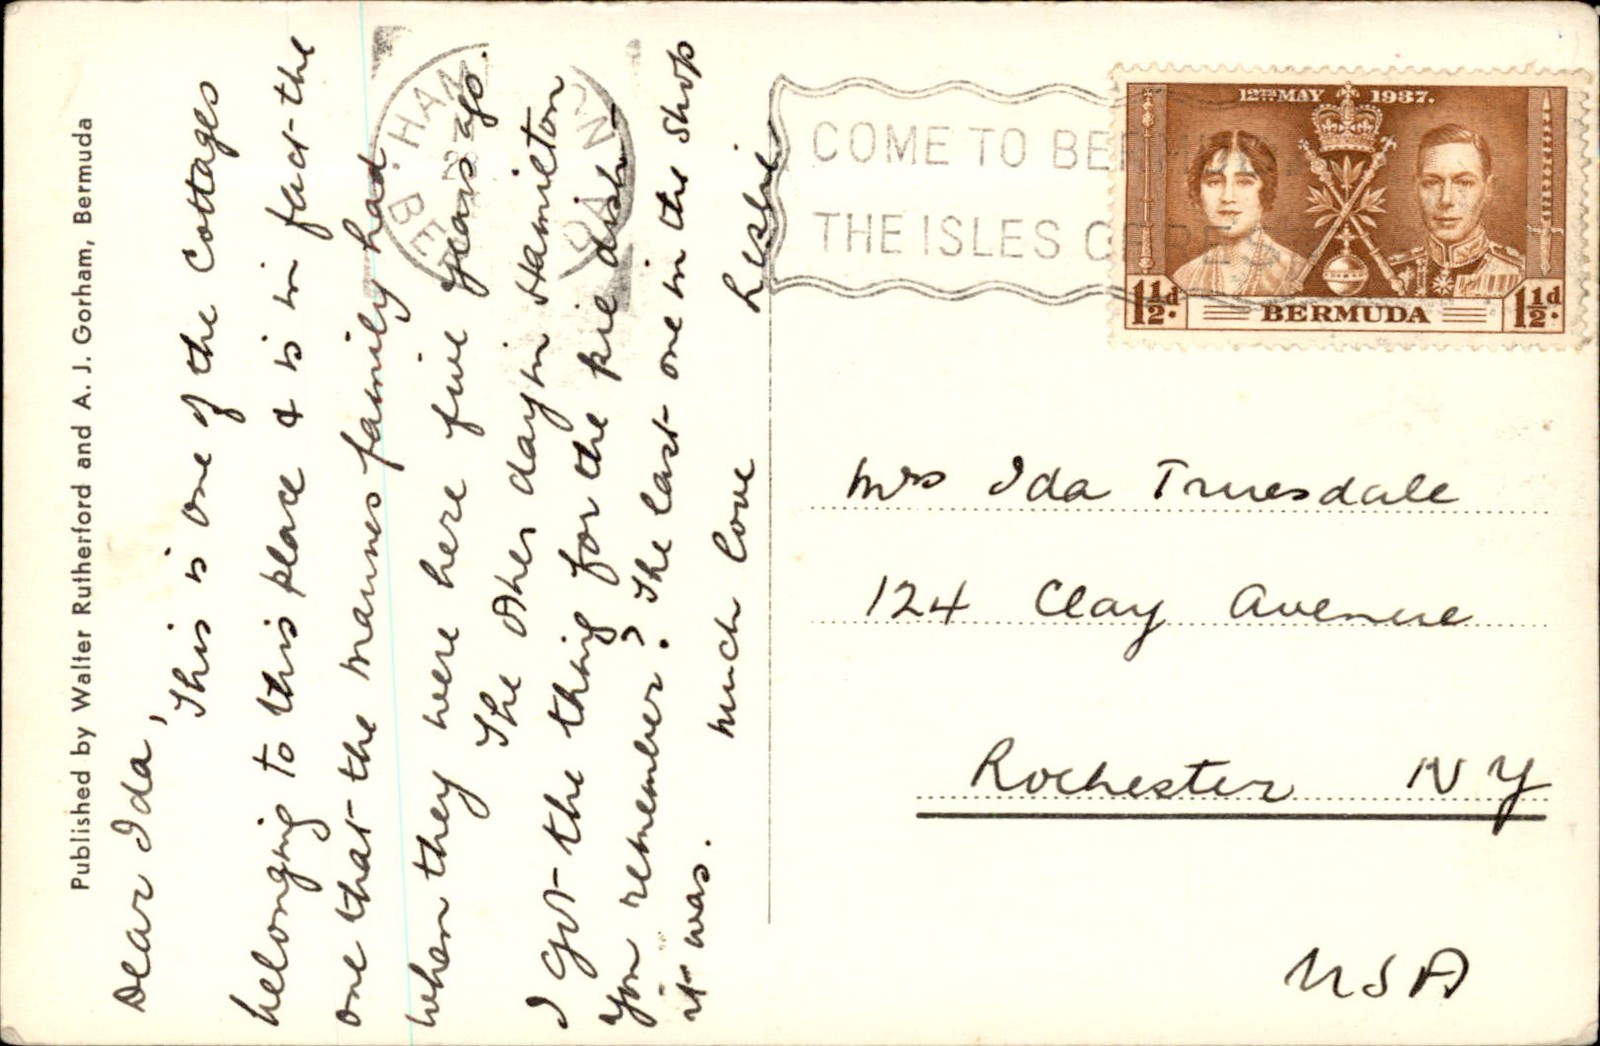 Published by Walter Rutherford and A. J. Gorham, Bermuda
Dear Ida,
This is one of the cottages
belonging to this place & is in fact the
one that the Manus family had
when they were here five years ago.
The other day in Hamilton
I got the thing for the pie dish -
you remember? The last one in the shop
it was.
Much love
Leslie
HAM
BE
COME TO BERMUDA
THE ISLES OF REST
12TH MAY 1937.
1½d. BERMUDA 1½d.
Mrs Ida Truesdale
124 Clay Avenue
Rochester NY
USA